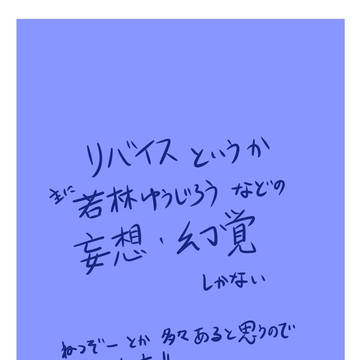 リバイスというか
主に
若林ゆうじろうなどの
妄想・幻覚
しかない
ねつぞーとか多々あると思うので